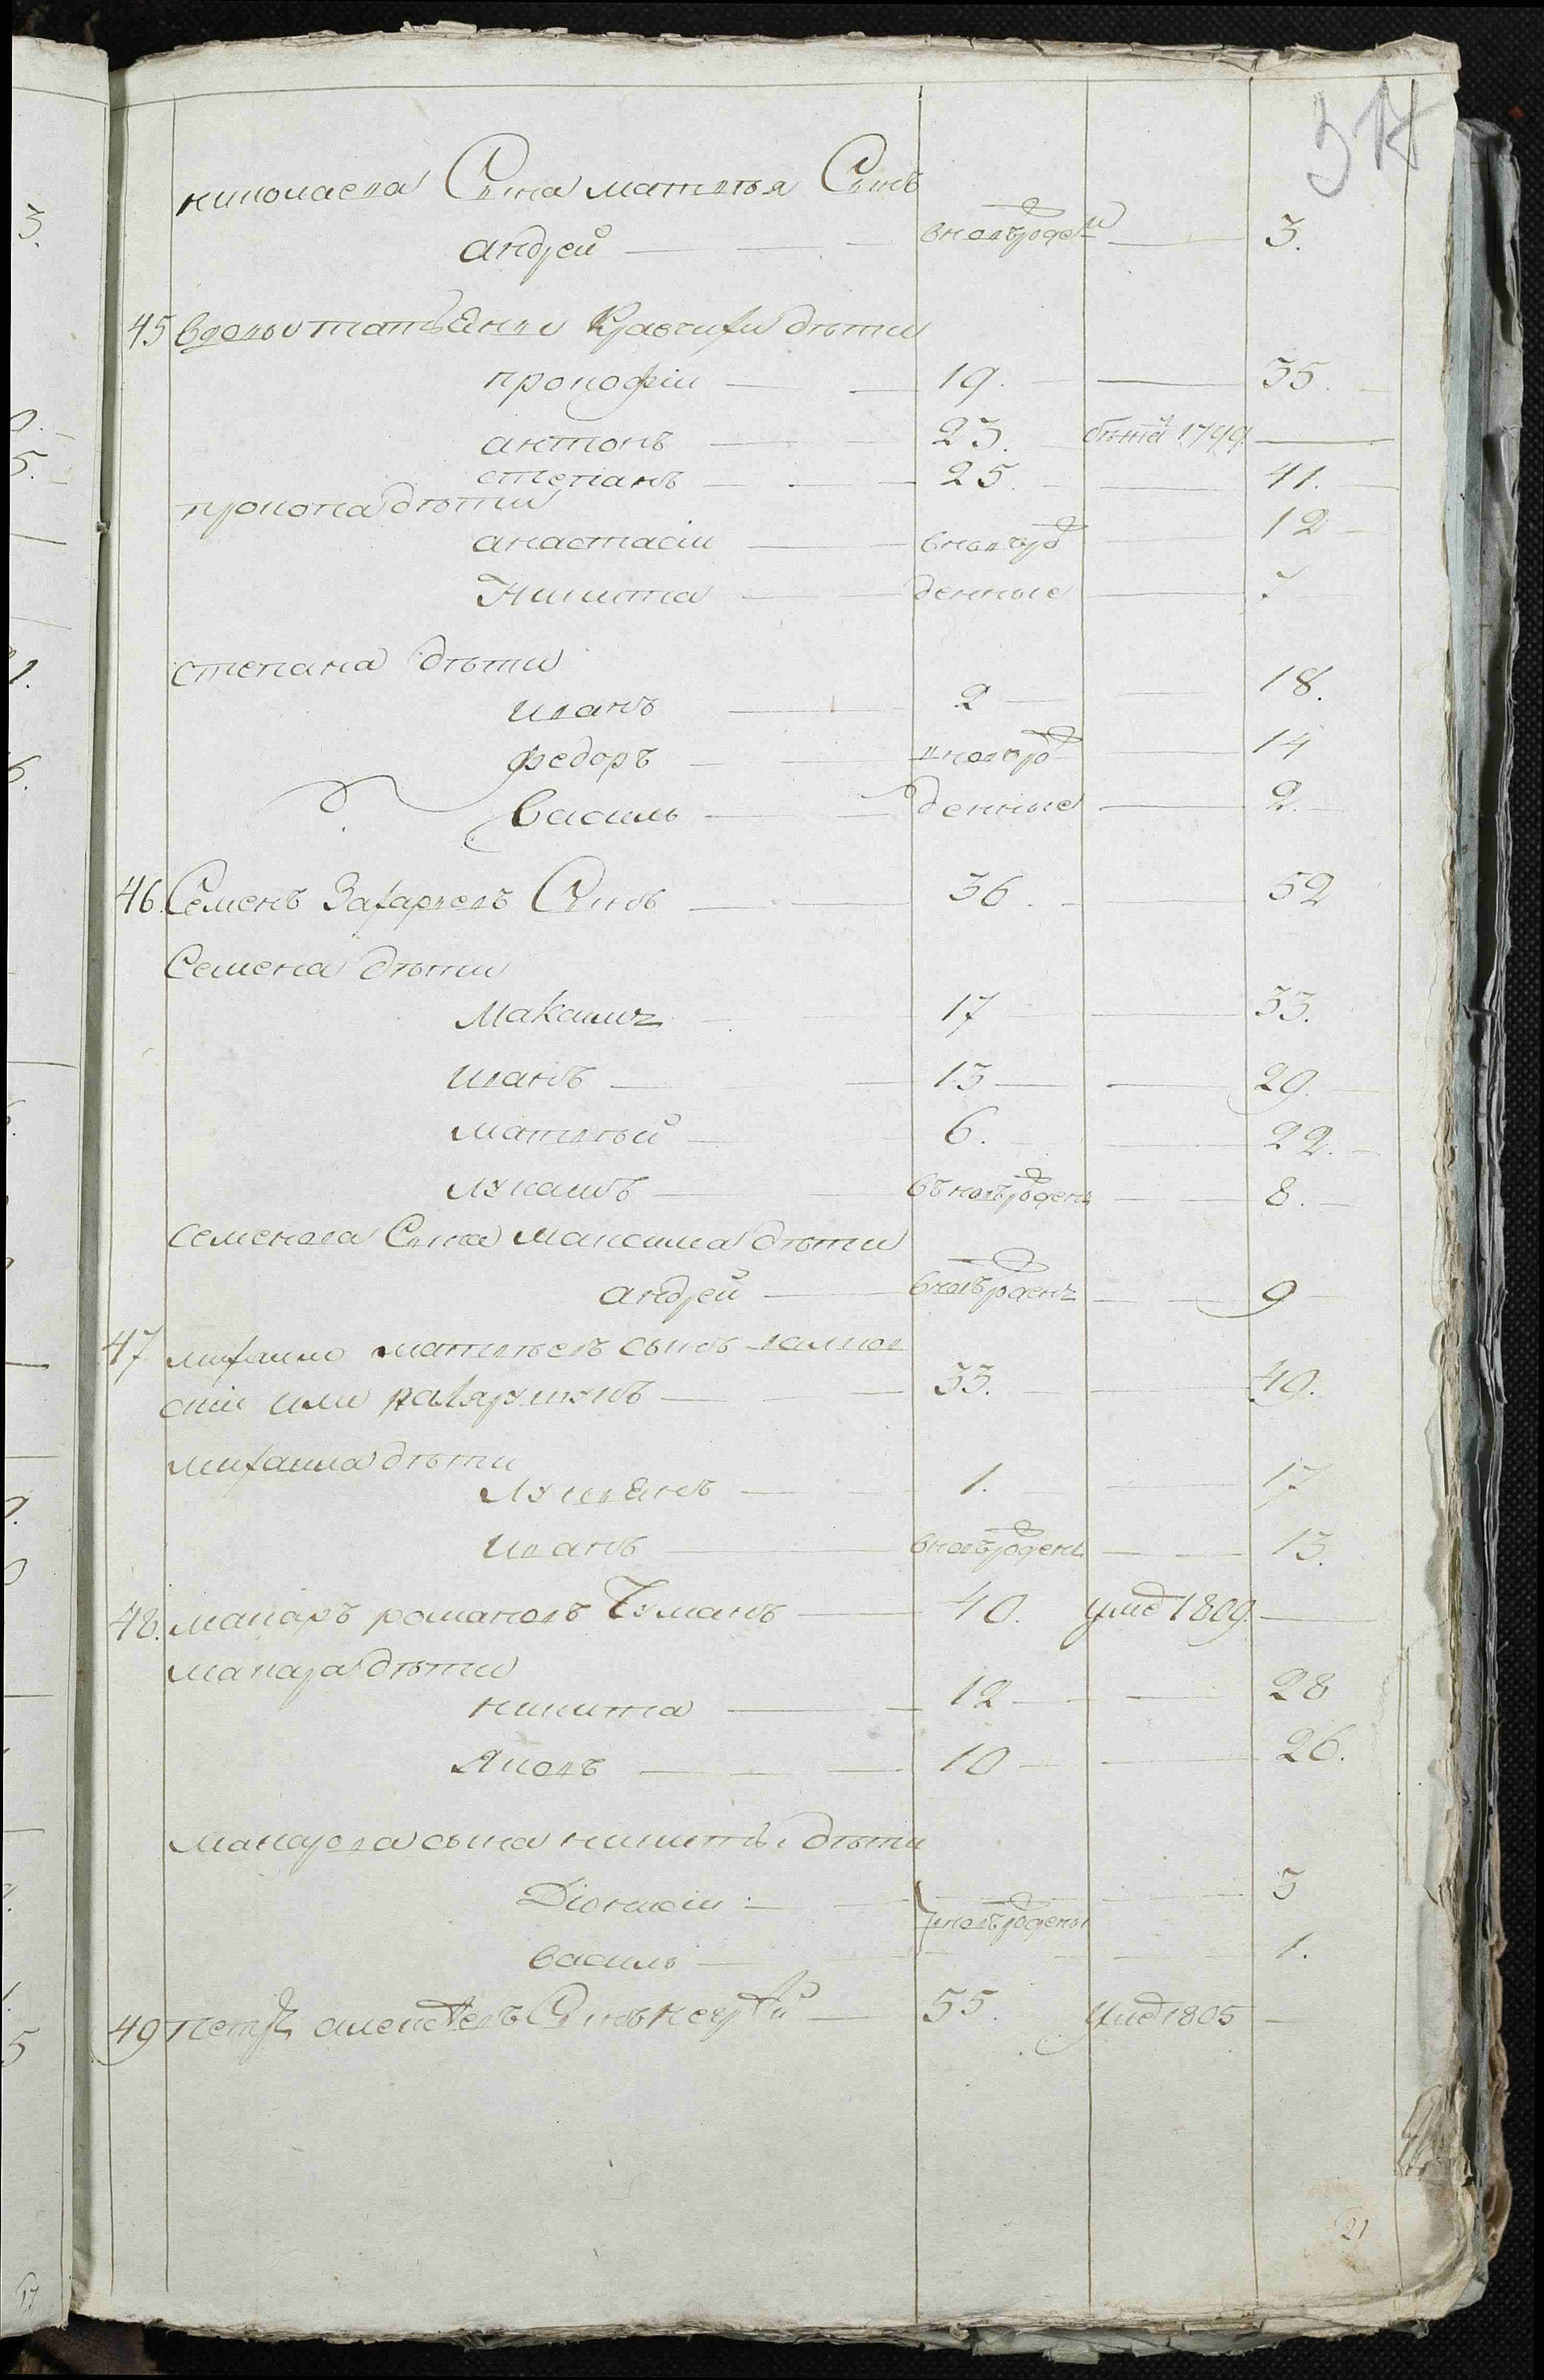 николаева Сына матвѣя Сынъ
андрей — вновьрожден — 3.
45 вдовы татьЕны Кравчихи дѣти
прокофіи — 19. — 35.
антонъ — 23. бежа 1799 —
степанъ — 25. — 41.
прокопа дѣти
анастасіи — вновьрож — 12
Никита — денные — 7
степана дѣти
иванъ — 2 — 18.
федоръ — вновьрож — 14
Василь — денные — 2.
46. Семенъ Захаревъ Сынъ — 36. — 52
Семена дѣти
Максимъ — 17 — 33.
иванъ — 13 — 29.
матвѣй — 6. — 22.
лукашъ — вновьрожден — 8.
семенова Сына максима дѣти
андрей — вновьрожденъ — 9
47 михаило матвѣевъ сынъ
или — 33. — 49.
михаила дѣти
Лукіянъ — 1. — 17
иванъ — вновьрожденъ — 13.
48. макаръ романовъ Чуманъ — 40. умер 1809. —
макара дѣти
никита — 12 — 28
Яковъ — 10 — 26.
макарова сына никиты дѣти
Діонисіи — 3
вновьрождены
василь — 1.
49 петръ алексѣевъ Сынъ — 55. умер 1805 —
21